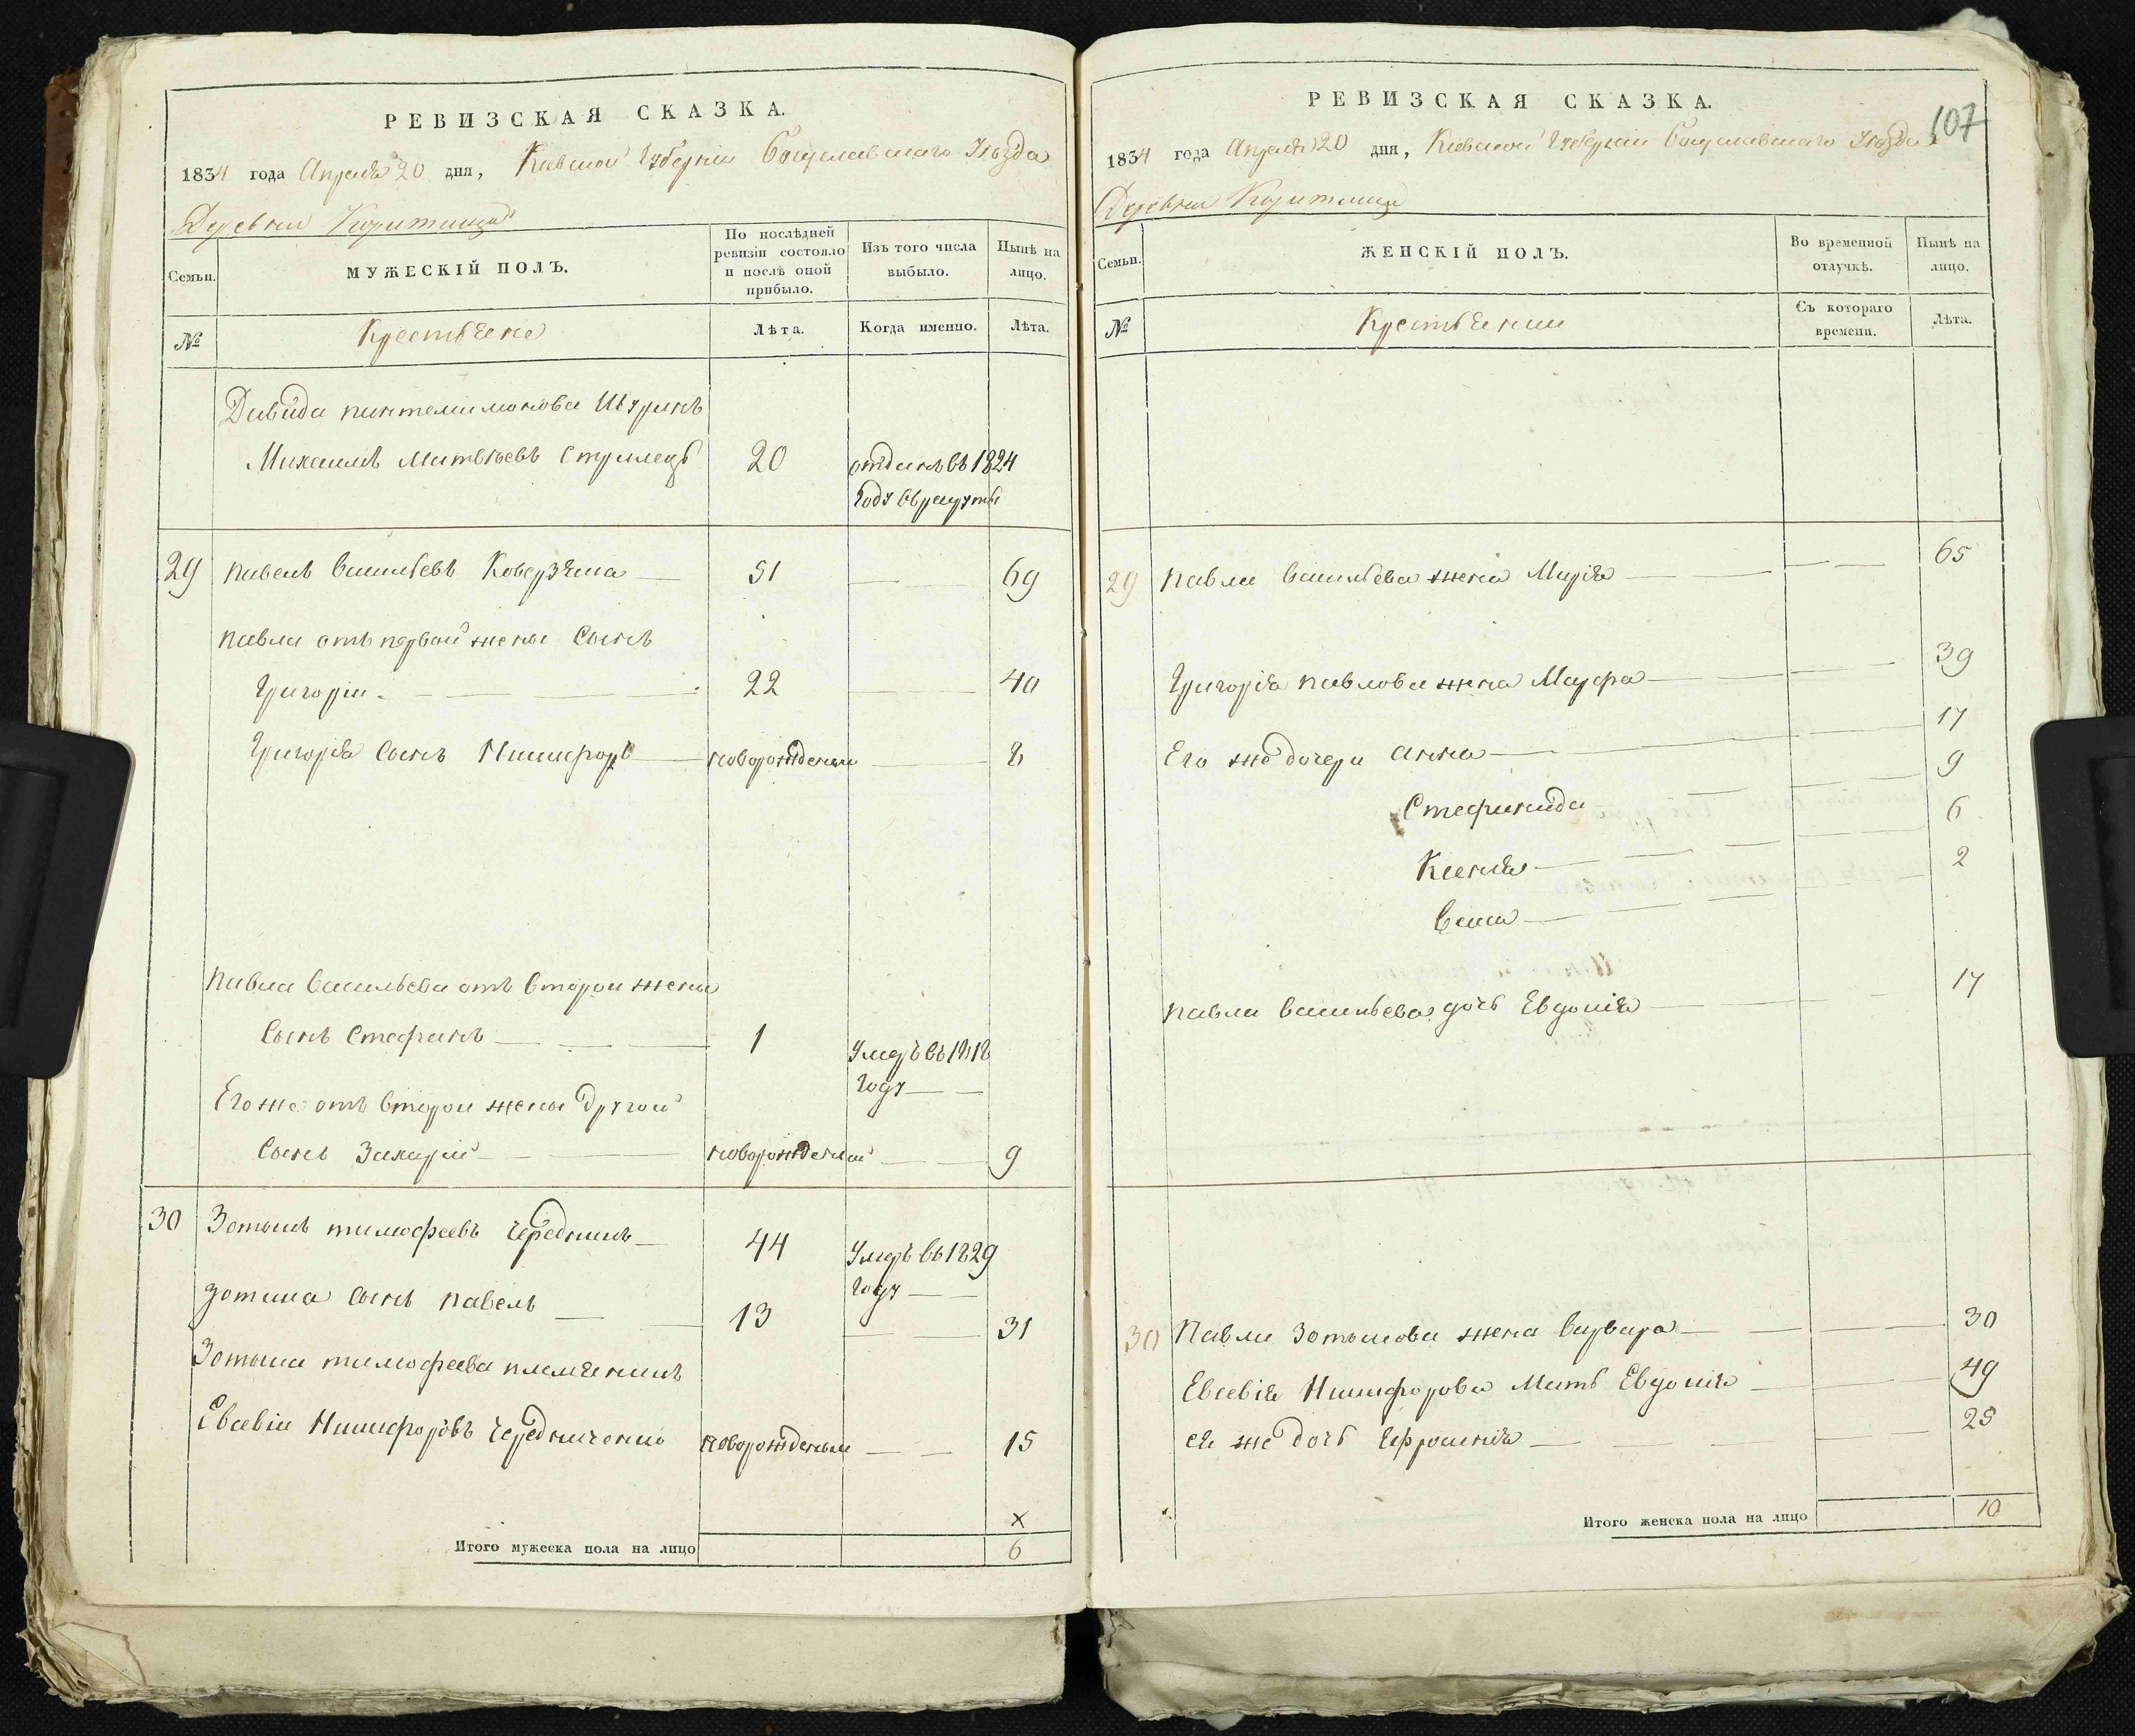 РЕВИЗСКАЯ СКАЗКА.
1834 года Апреля 20 дня, Киевской Губернии Богуславского Уезда
Деревни Коритища
Семьи.
МУЖЕСКІЙ ПОЛЪ.
По послѣдней ревизіи состояло и послѣ оной прибыло.
Изъ того числа выбыло.
Нынѣ на лицо.
№
Крестьяне
Лѣта.
Когда именно.
Лѣта.
Давида пантелимонова Шуринъ
Михаилъ Матвѣевъ Стрилецъ 20 отданъ въ 1824
Году въ рекруты
29 Павелъ Васильевъ Коверзяка 51 69
Павла отъ первой жены Сынъ
Григорій 22 40
Григорія Сынъ Никифоръ новорожденый 8
Павла Васильева отъ второй жены
Сынъ Стефанъ 1 Умеръ въ 1818
Году
Его же отъ второй жены другой
Сынъ Захарій новорожденый 9
30 Зотыкъ тимофеевъ Чередникъ 44 Умеръ въ 1829
Году
Зотика Сынъ Павелъ 13 31
Зотыка тимофеева племяникъ
Евсевій Никифоровъ Чередниченко новорожденый 15
х
Итого мужеска пола на лицо 6
107
РЕВИЗСКАЯ СКАЗКА.
1834 года Апреля 20 дня, Киевской Губернии Богуславского Уезда
Деревни Коритища
Семьи.
ЖЕНСКІЙ ПОЛЪ.
Во временной отлучкѣ.
Нынѣ на лицо.
№
Крестьянки
Съ котораго времени.
Лѣта.
29 Павла Васильева жена Марія 65
Григорія Павлова жена Мавра 39
Его же дочери Анна 17
Стефанида 9
Ксенія 6
2
Павла Васильева дочь Евдокія 17
30 Павла Зотыкова жена Варвара 30
Евсевія Никифорова Мать Евдокія 49
ея же дочь Ефросинія 25
Итого женска пола на лицо 10